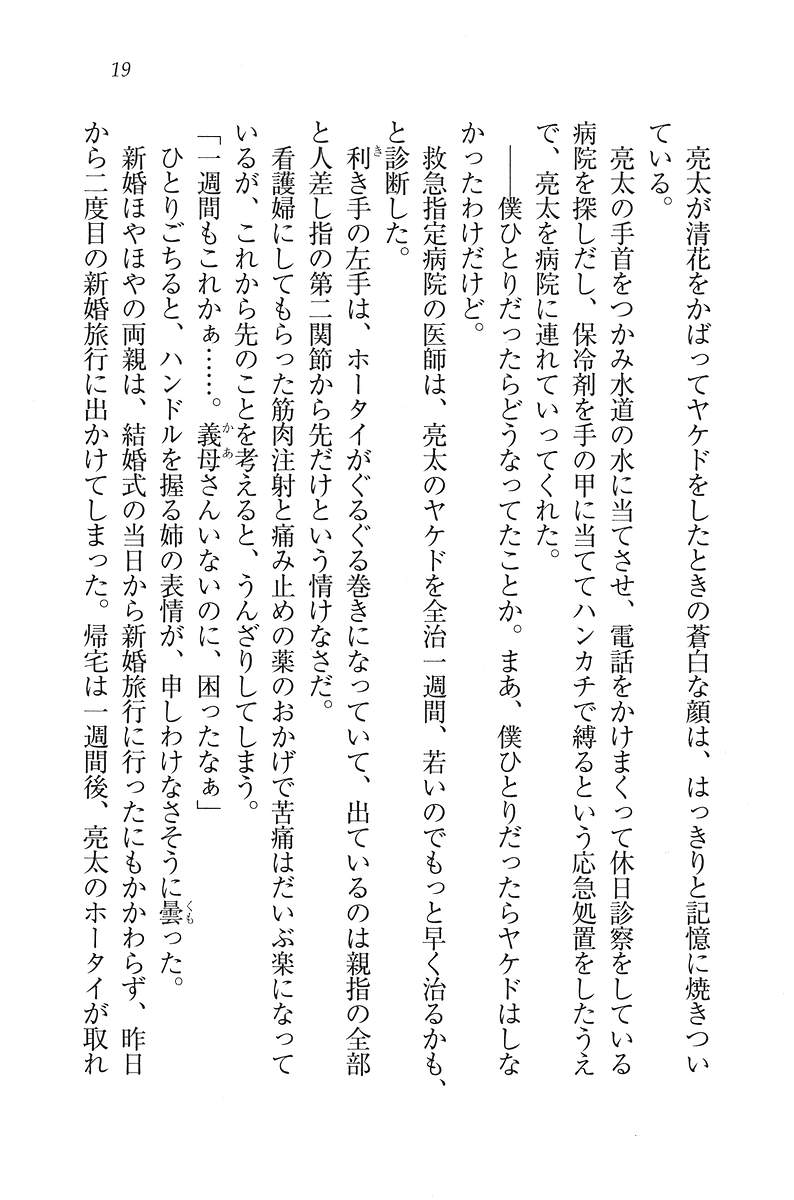 19
亮太が清花をかばってヤケドをしたときの蒼白な顔は、はっきりと記憶に焼きつい
ている。
亮太の手首をつかみ水道の水に当てさせ、電話をかけまくって休日診察をしている
病院を探しだし、保冷剤を手の甲に当ててハンカチで縛るという応急処置をしたうえ
で、亮太を病院に連れていってくれた。
――僕ひとりだったらどうなってたことか。まあ、僕ひとりだったらヤケドはしな
かったわけだけど。
救急指定病院の医師は、亮太のヤケドを全治一週間、若いのでもっと早く治るかも、
と診断した。
利き手の左手は、ホータイがぐるぐる巻きになっていて、出ているのは親指の全部
と人差し指の第二関節から先だけという情けなさだ。
看護婦にしてもらった筋肉注射と痛み止めの薬のおかげで苦痛はだいぶ楽になって
いるが、これから先のことを考えると、うんざりしてしまう。
「一週間もこれかぁ……。義母さんいないのに、困ったなぁ」
ひとりごちると、ハンドルを握る姉の表情が、申しわけなさそうに曇った。
新婚ほやほやの両親は、結婚式の当日から新婚旅行に行ったにもかかわらず、昨日
から二度目の新婚旅行に出かけてしまった。帰宅は一週間後、亮太のホータイが取れ